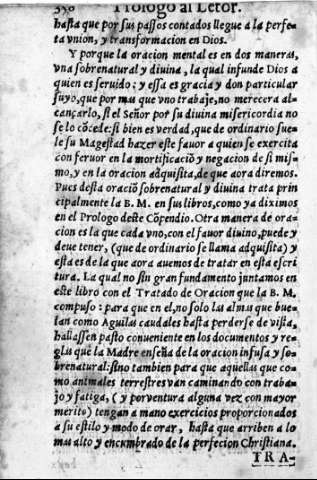 350 Prologo al Letor.
hasta que por sus passos contados llegue a la perfe-
ta vnion, y transformacion en Dios.
Y porque la oracion mental es en dos maneras,
vna sobrenatural y diuina, la qual infunde Dios a
quien es seruido: y essa es gracia y don particular
suyo, que por mas que vno trabaje, no merecera al-
cançarlo, si el Señor por su diuina misericordia no
se lo cõcede: si bien es verdad, que de ordinario sue-
le su Magestad hazer este fauor a quien se exercita
con feruor en la mortificaciõ y negacion de si mis-
mo, y en la oracion adquisita, de que aora diremos.
Pues desta oraciõ sobrenatural y diuina trata prin
cipalmente la B. M. en sus libros, como ya diximos
en el Prologo deste Cõpendio. Otra manera de ora-
cion es la que cada vno, con el fauor diuino, puede y
deue tener, (que de ordinario se llama adquisita) y
esta es de la que aora auemos de tratar en esta escri
tura. La qual no sin gran fundamento juntamos en
este libro con el Tratado de Oracion que la B. M.
compuso: para que en el, no solo las almas que bue-
lan como Aguilas caudales hasta perderse de vista,
hallassen pasto conueniente en los documentos y re-
glas que la Madre enseña de la oracion infusa y so-
brenatural: sino tambien para que aquellas que co-
mo animales terrestres van caminando con traba-
jo y fatiga, (y por ventura alguna vez con mayor
merito) tengan a mano exercicios proporcionados
a su estilo y modo de orar, hasta que arriben a lo
mas alto y encumbrado de la perfecion Christiana.
TRA-